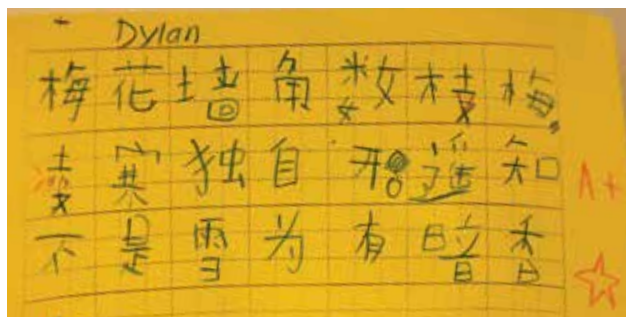 Dylan
梅花墙角数枝梅
凌寒独自开遥知
不是雪为有暗香
A+